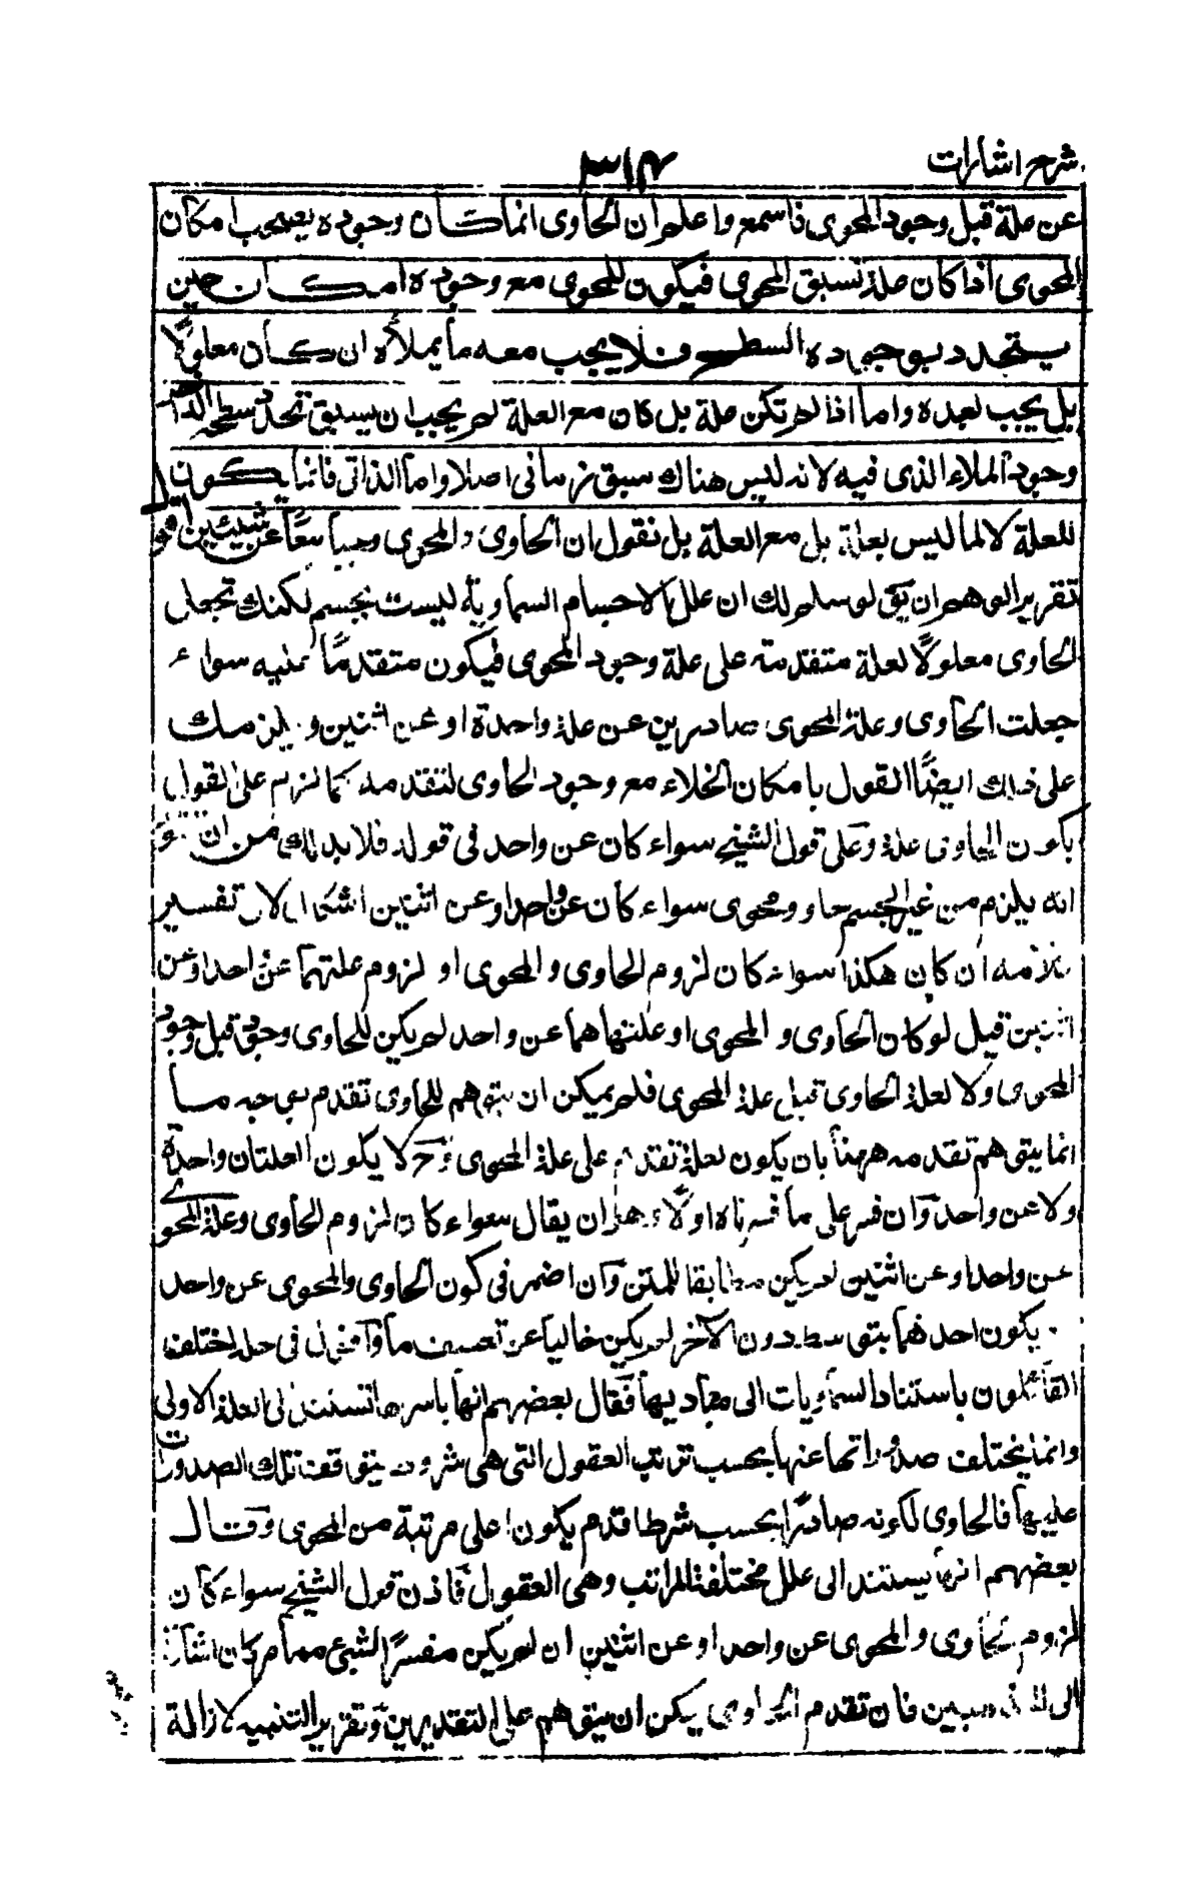 شرح اشارات
٣١٤
عن علة قبل وجود المحوى فاسمع واعلم ان الحاوى انما كان وجوده يصحب امكان
المحوى اذا كان علة تسبق المحوى فيكون للمحوى مع وجوده امكان حين
يتحدد بوجوده السطح فلا يجب معه ما يملأه ان كان معلولا
بل يجب بعده واما اذا لم تكن علة بل كان مع العلة لم يجب ان يسبق تحدد سطحه الداخل
وجود الملاء الذى فيه لانه ليس هناك سبق زمانى اصلا واما الذاتى فانما يكون
للعلة لا لما ليس بعلة بل مع العلة بل نقول ان الحاوى والمحوى وجبا معًا عن شيئين اقول
تقرير الوهم ان يق لو سلم لك ان علل الاجسام السماوية ليست بجسم لكنك تجعل
الحاوى معلولًا لعلة متقدمته على علة وجود المحوى فيكون متقدمًا عليه سواء
جعلت الحاوى وعلة المحوى صادرين عن علة واحدة او عن اثنين ويلزمك
على ذلك ايضًا القول بامكان الخلاء مع وجود الحاوى لتقدمه كما لزم على القول
بكون الحاوى علة وعلى قول الشيخ سواء كان عن واحد فى قوله فلابد لك من ان تقول
انه يلزم من غير الجسم حاو ومحوى سواء كان عن واحد او عن اثنين اشكال لان تفسير
كلامه ان كان هكذا سواء كان لزوم الحاوى والمحوى او لزوم علتهما عن احد او عن
اثنين قيل لو كان الحاوى و المحوى او علتهما هما عن واحد لم يكن للحاوى وجود قبل وجود
المحوى ولا لعلة الحاوى قبل علة المحوى فلم يمكن ان يتوهم للحاوى تقدم بوجه ما
انما يتوهم تقدمه ههنا بان يكون لعلة تقدم على علة المحوى وح لا يكون العلتان واحدة
ولا عن واحد وان فسر على ما فسرناه اولًا وهو ان يقال سواء كان لزوم الحاوى وعلة المحوى
عن واحد او عن اثنين لم يكن مطابقا للمتن وان اضمر فى كون الحاوى والمحوى عن واحد
يكون احدهما بتوسط دون الآخر لم يكن خاليا عن تعسف ما واقول فى حله اختلف
القائلون باستناد السماويات الى مباديها فقال بعضهم انها باسرها تستند الى العلة الاولى
وانما يختلف صدوراتها عنها بحسب ترتب العقول التى هى شروط يتوقف تلك الصدورات
عليها فالحاوى لكونه صادرًا بحسب شرط اقدم يكون اعلى مرتبة من المحوى وقال
بعضهم انها يستند الى علل مختلفة المراتب وهى العقول فاذن قول الشيخ سواء كان
لزوم الحاوى والمحوى عن واحد او عن اثنين ان لم يكن مفسرًا لشئ مما مر كان اشارة
الى المذهبين فان تقدم الحاوى يمكن ان يتوهم على التقديرين وتقرير التنبيه لازالة